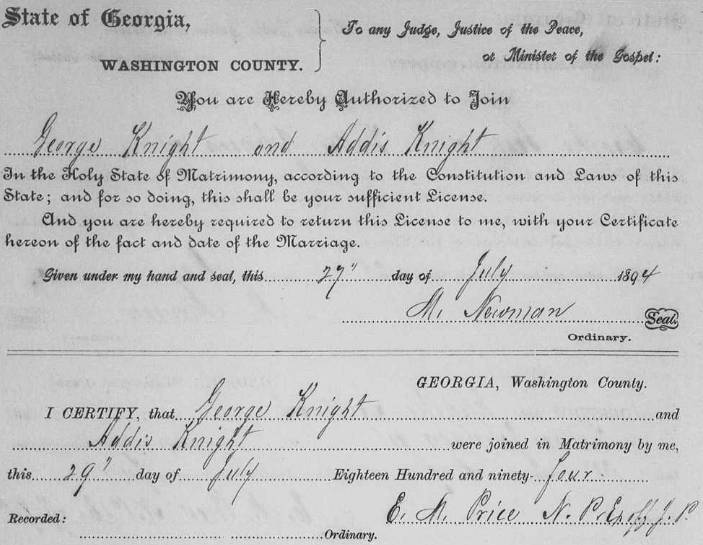 State of Georgia,
WASHINGTON COUNTY.
To any Judge, Justice of the Peace,
or Minister of the Gospel:
You are Hereby Authorized to Join
George Knight and Addis Knight
In the Holy State of Matrimony, according to the Constitution and Laws of this
State; and for so doing, this shall be your sufficient License.
And you are hereby required to return this License to me, with your Certificate
hereon of the fact and date of the Marriage.
Given under my hand and seal, this 27" day of July 1894
M. Newman Seal.
Ordinary.
GEORGIA, Washington County.
I CERTIFY, that George Knight and
Addis Knight were joined in Matrimony by me,
this 29" day of July Eighteen Hundred and ninety-four
E. M. Price N. P. Ex off J. P.
Recorded: Ordinary.